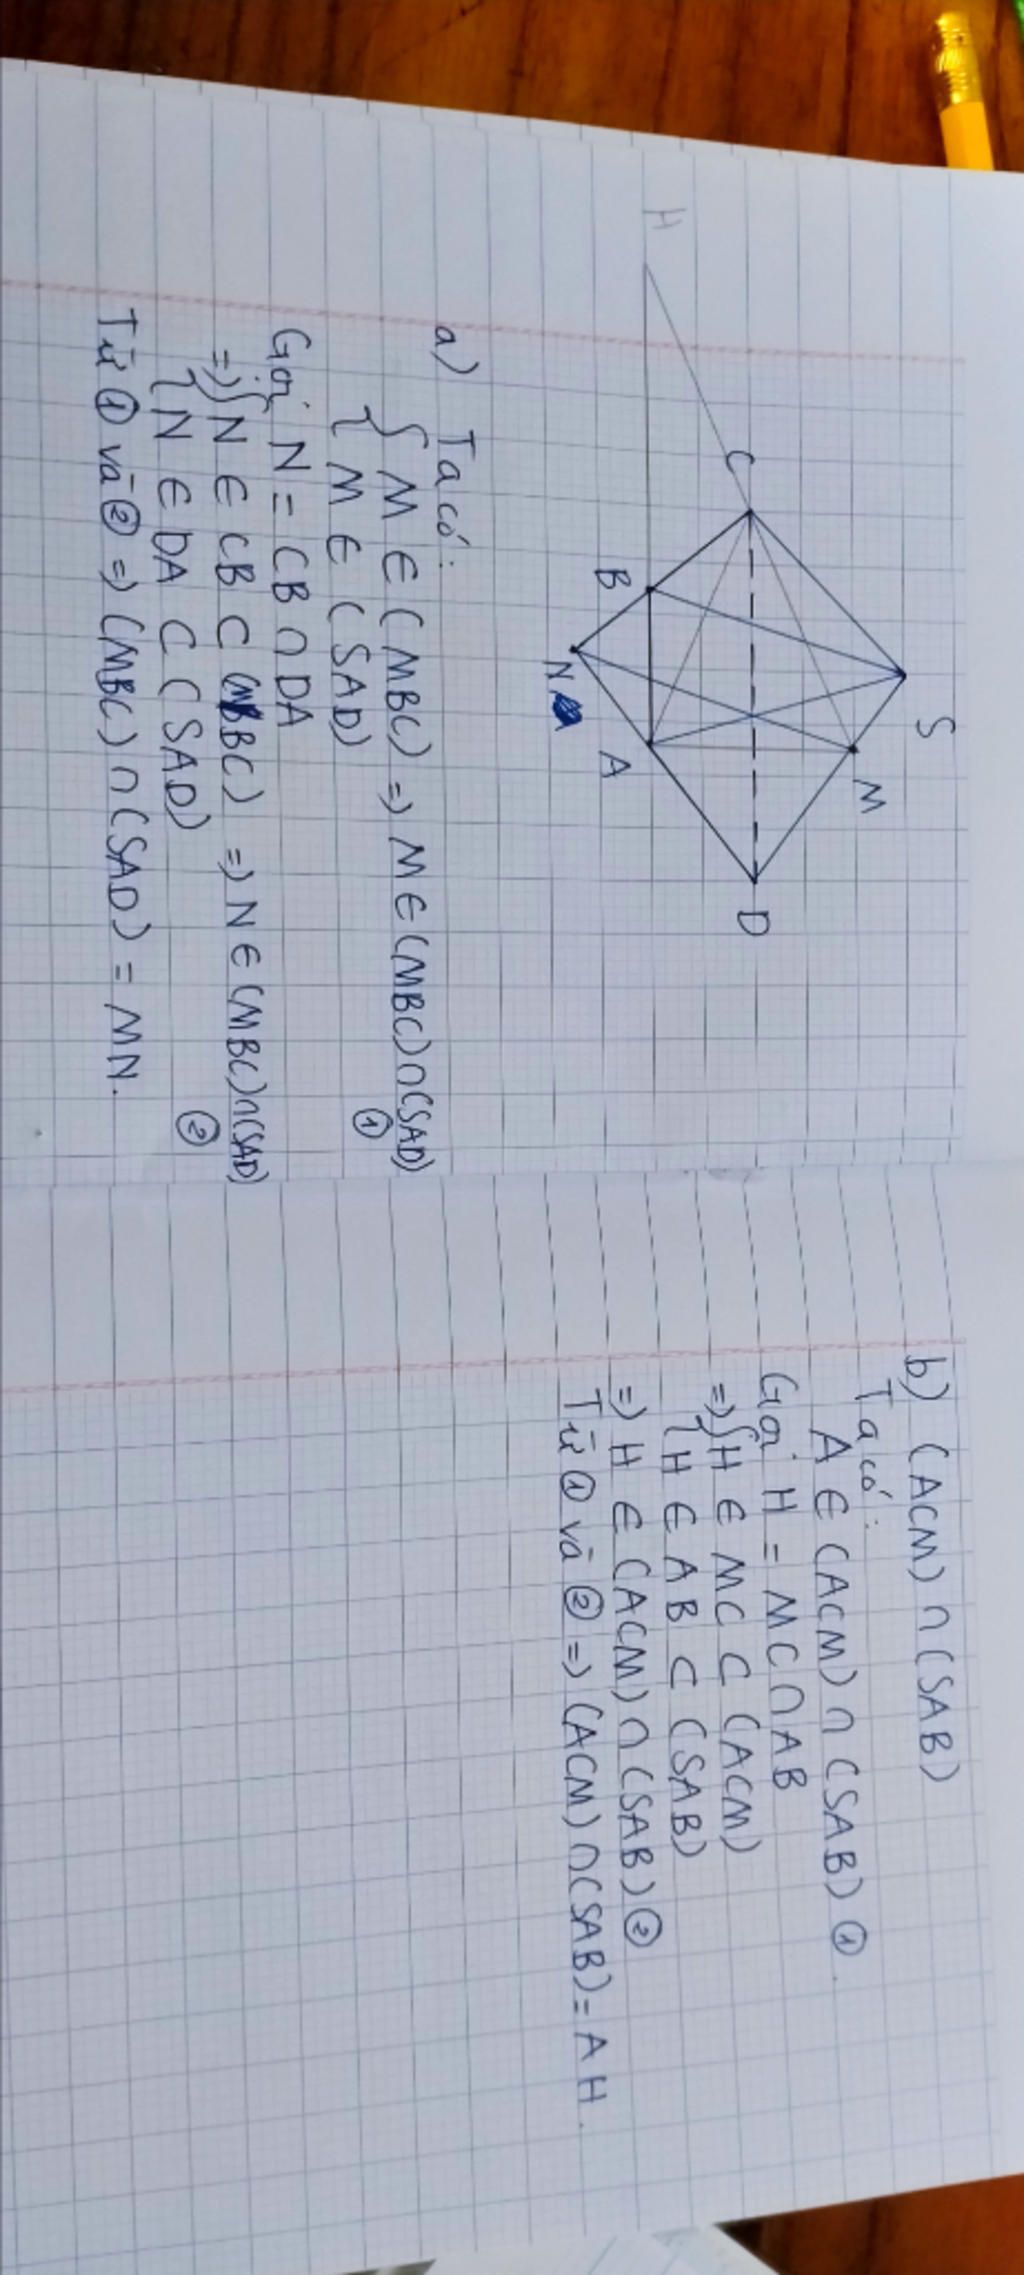 S
M
C
D
H
B
A
N
a) Ta có:
{ M ∈ (MBC) => M ∈ (MBC) ∩ (SAD)
{ M ∈ (SAD) ①
Gọi N = CB ∩ DA
=> { N ∈ CB ⊂ (MBC) => N ∈ (MBC) ∩ (SAD)
{ N ∈ DA ⊂ (SAD) ②
Từ ① và ② => (MBC) ∩ (SAD) = MN.
b) (ACM) ∩ (SAB)
Ta có:
A ∈ (ACM) ∩ (SAB) ①
Gọi H = MC ∩ AB
=> { H ∈ MC ⊂ (ACM)
{ H ∈ AB ⊂ (SAB)
=> H ∈ (ACM) ∩ (SAB) ②
Từ ① và ② => (ACM) ∩ (SAB) = AH.